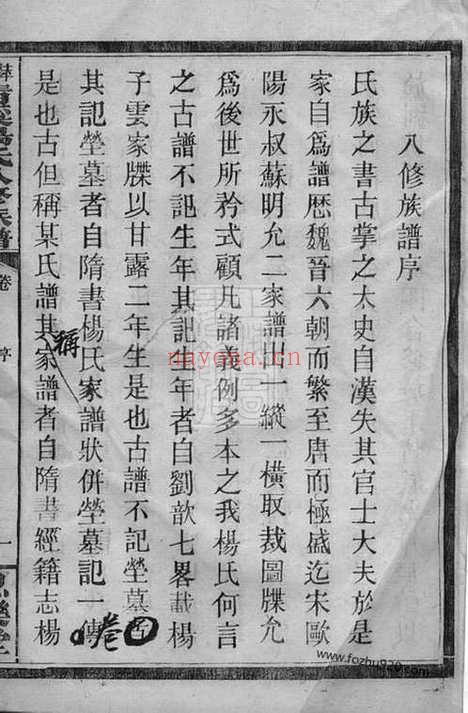 八修族譜序
氏族之書古掌之太史自漢失其官士大夫於是
家自爲譜歷魏晉六朝而繁至唐而極盛迄宋歐
陽永叔蘇明允二家譜出一縱一橫取裁圖牒允
爲後世所矜式顧凡諸義例多本之我楊氏何言
之古譜不記生年其記生年者自劉歆七畧載楊
子雲家牒以甘露二年生是也古譜不記塋墓
其記塋墓者自隋書楊氏家譜狀併塋墓記一卷
是也古但稱某氏譜其稱家譜者自隋書經籍志楊
氏八修族譜
卷
序
一
nayona.cn
www.fozhu920.com